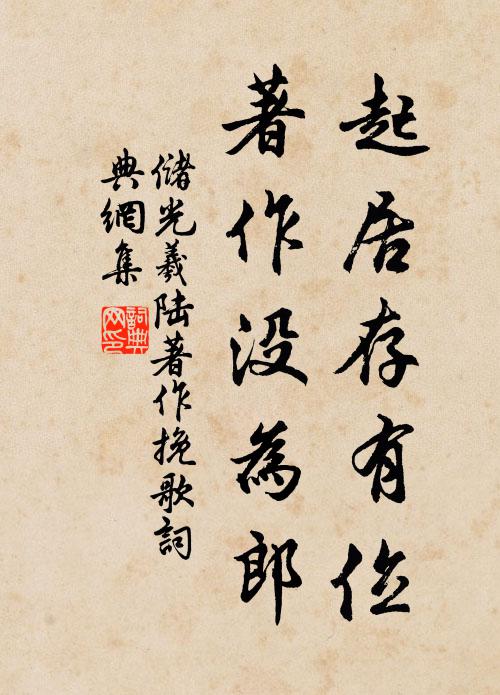 起居存有俭
著作没為郎
儲光羲陆著作挽歌詞
典網集
詞典
网印